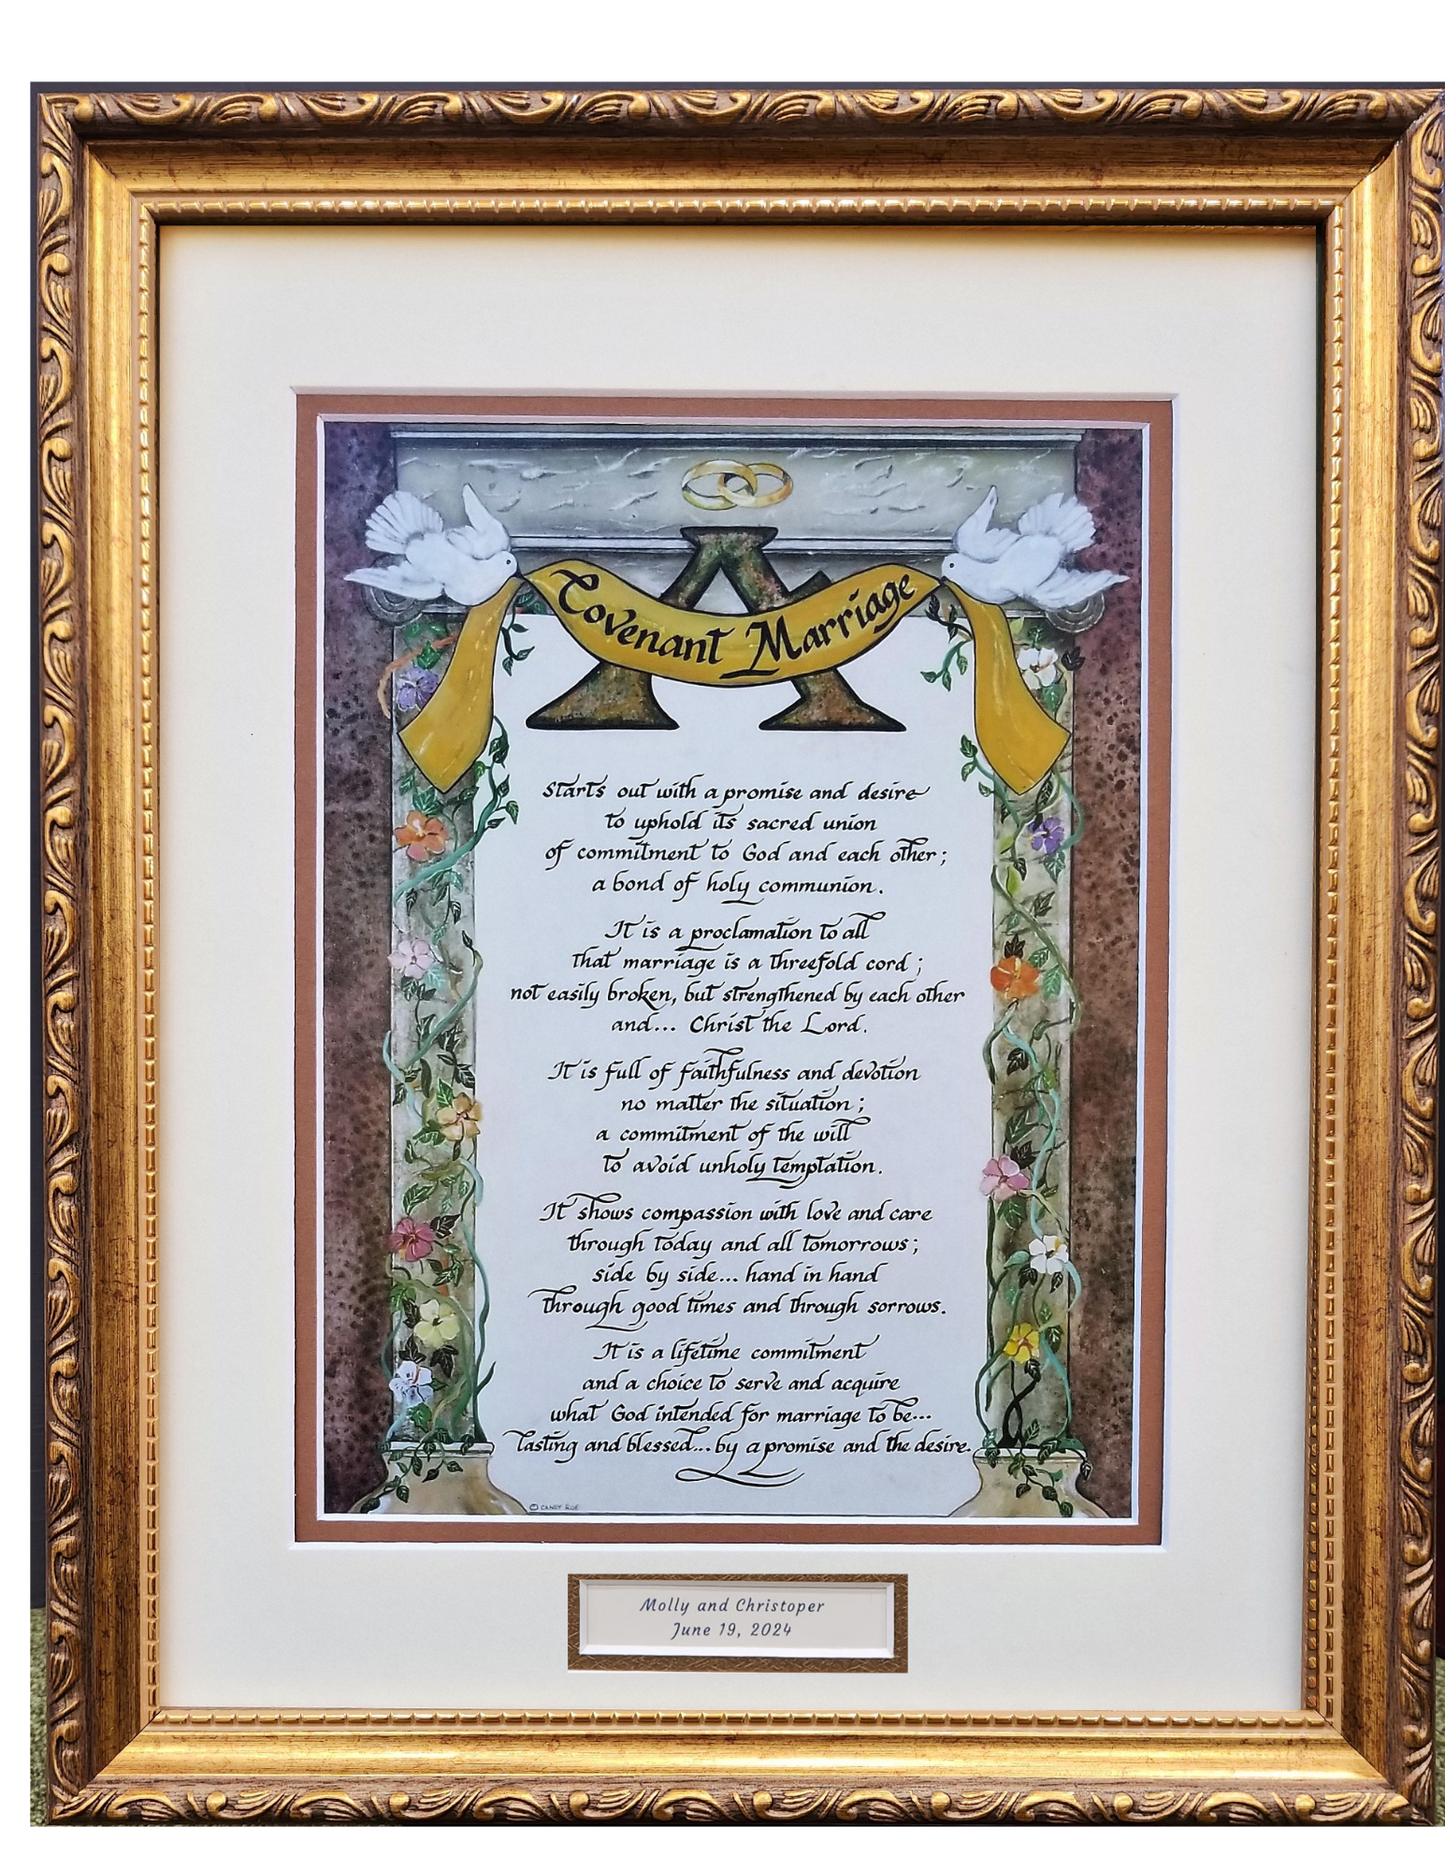 A
Covenant Marriage
Starts out with a promise and desire
to uphold its sacred union
of commitment to God and each other;
a bond of holy communion.
It is a proclamation to all
that marriage is a threefold cord;
not easily broken, but strengthened by each other
and... Christ the Lord.
It is full of faithfulness and devotion
no matter the situation;
a commitment of the will
to avoid unholy temptation.
It shows compassion with love and care
through today and all tomorrows;
side by side... hand in hand
through good times and through sorrows.
It is a lifetime commitment
and a choice to serve and acquire
what God intended for marriage to be...
lasting and blessed... by a promise and the desire.
© CANDY ROE
Molly and Christoper
June 19, 2024